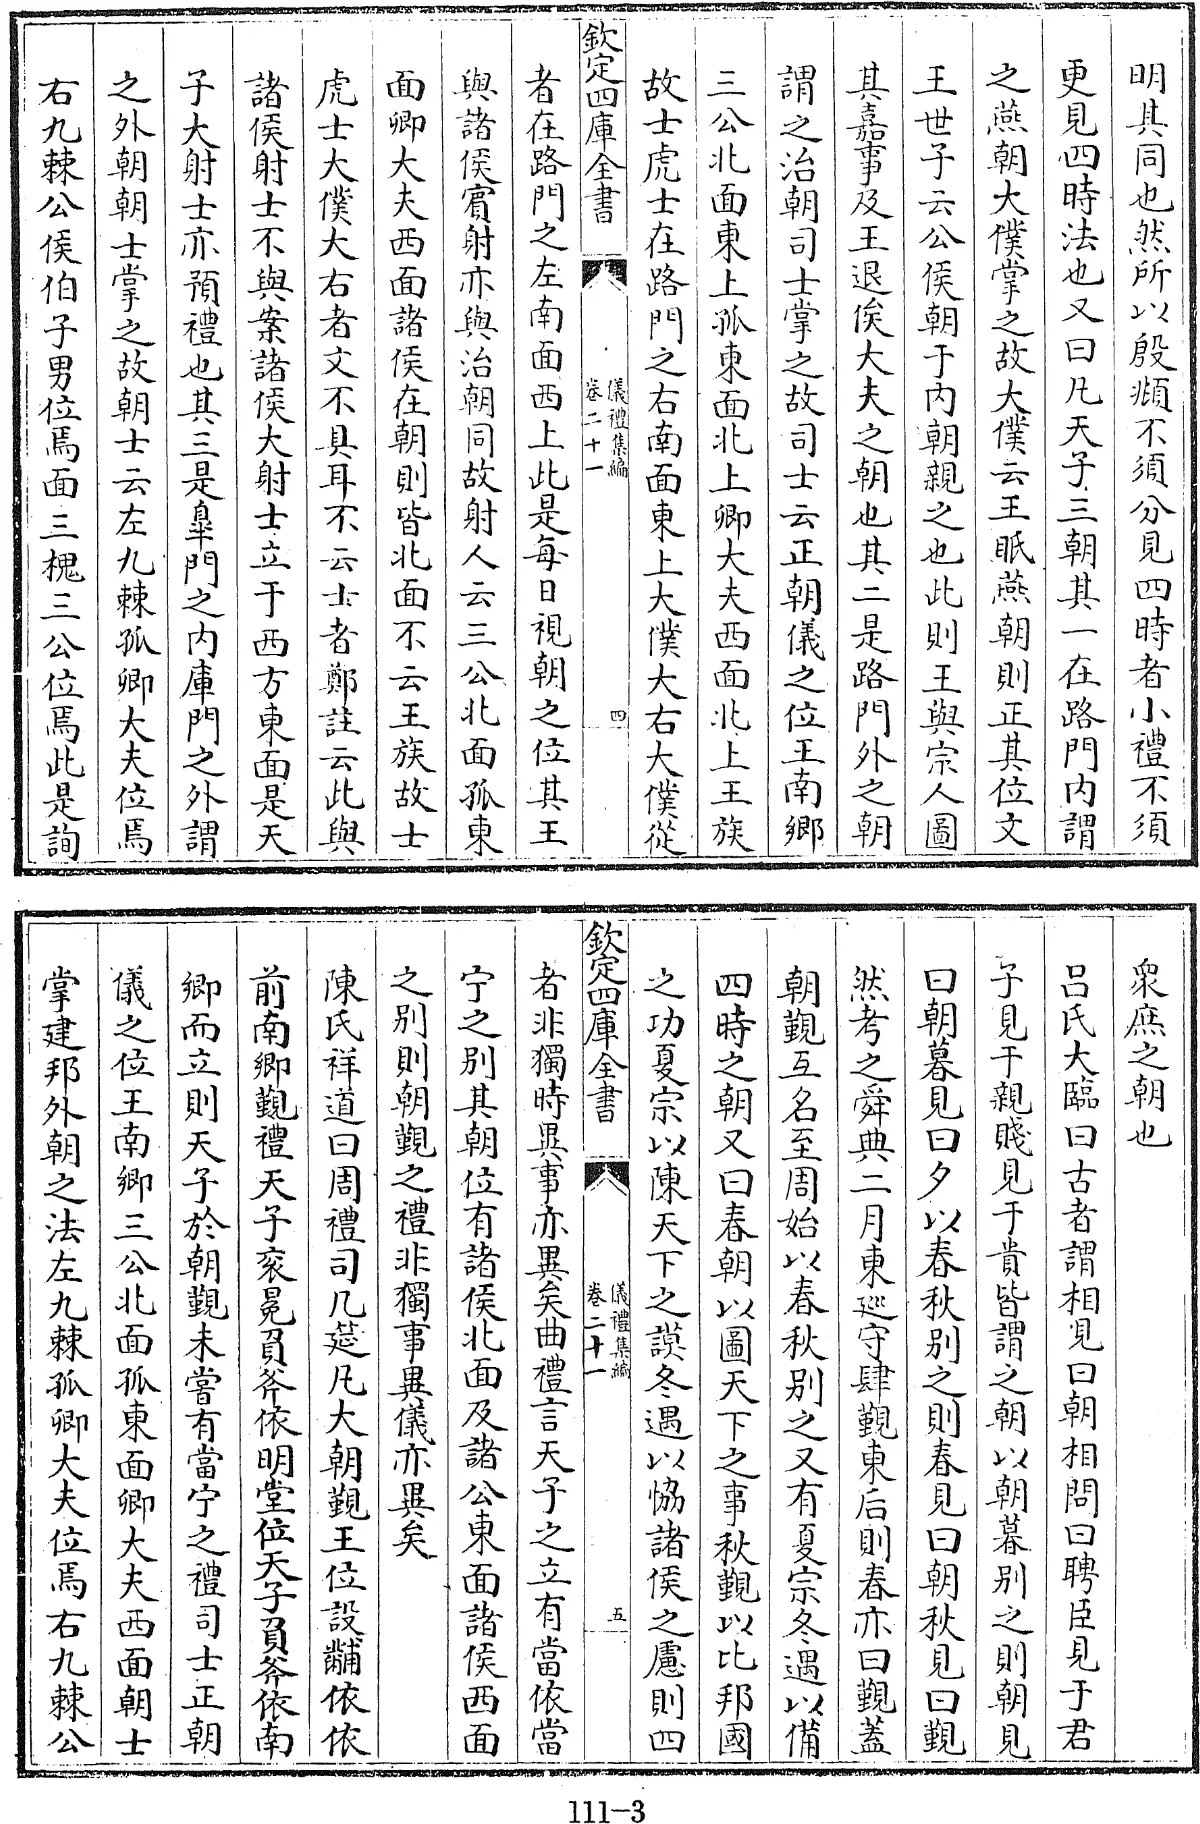 明其同也然所以殷頫不須分見四時者小禮不須
更見四時法也又曰凡天子三朝其一在路門内謂
之燕朝大僕掌之故大僕云王眡燕朝則正其位文
王世子云公侯朝于内朝親之也此則王與宗人圖
其嘉事及王退俟大夫之朝也其二是路門外之朝
謂之治朝司士掌之故司士云正朝儀之位王南鄉
三公北面東上孤東面北上卿大夫西面北上王族
故士虎士在路門之右南面東上大僕大右大僕從
欽定四庫全書
儀禮集編
卷二十一
四
者在路門之左南面西上此是每日視朝之位其王
與諸侯賓射亦與治朝同故射人云三公北面孤東
面卿大夫西面諸侯在朝則皆北面不云王族故士
虎士大僕大右者文不具耳不云士者鄭註云此與
諸侯射士不與案諸侯大射士立于西方東面是天
子大射士亦預禮也其三是臯門之内庫門之外謂
之外朝朝士掌之故朝士云左九棘孤卿大夫位焉
右九棘公侯伯子男位焉面三槐三公位焉此是詢
眾庶之朝也
呂氏大臨曰古者謂相見曰朝相問曰聘臣見于君
子見于親賤見于貴皆謂之朝以朝暮別之則朝見
曰朝暮見曰夕以春秋别之則春見曰朝秋見曰覲
然考之舜典二月東巡守肆覲東后則春亦曰覲蓋
朝覲互名至周始以春秋别之又有夏宗冬遇以備
四時之朝又曰春朝以圖天下之事秋覲以比邦國
之功夏宗以陳天下之謨冬遇以恊諸侯之慮則四
欽定四庫全書
儀禮集編
卷二十一
五
者非獨時異事亦異矣曲禮言天子之立有當依當
宁之别其朝位有諸侯北面及諸公東面諸侯西面
之别則朝覲之禮非獨事異儀亦異矣
陳氏祥道曰周禮司几筵凡大朝覲王位設黼依依
前南鄉覲禮天子衮冕負斧依明堂位天子負斧依南
鄉而立則天子於朝覲未嘗有當宁之禮司士正朝
儀之位王南鄉三公北面孤東面卿大夫西面朝士
掌建邦外朝之法左九棘孤卿大夫位焉右九棘公
111-3